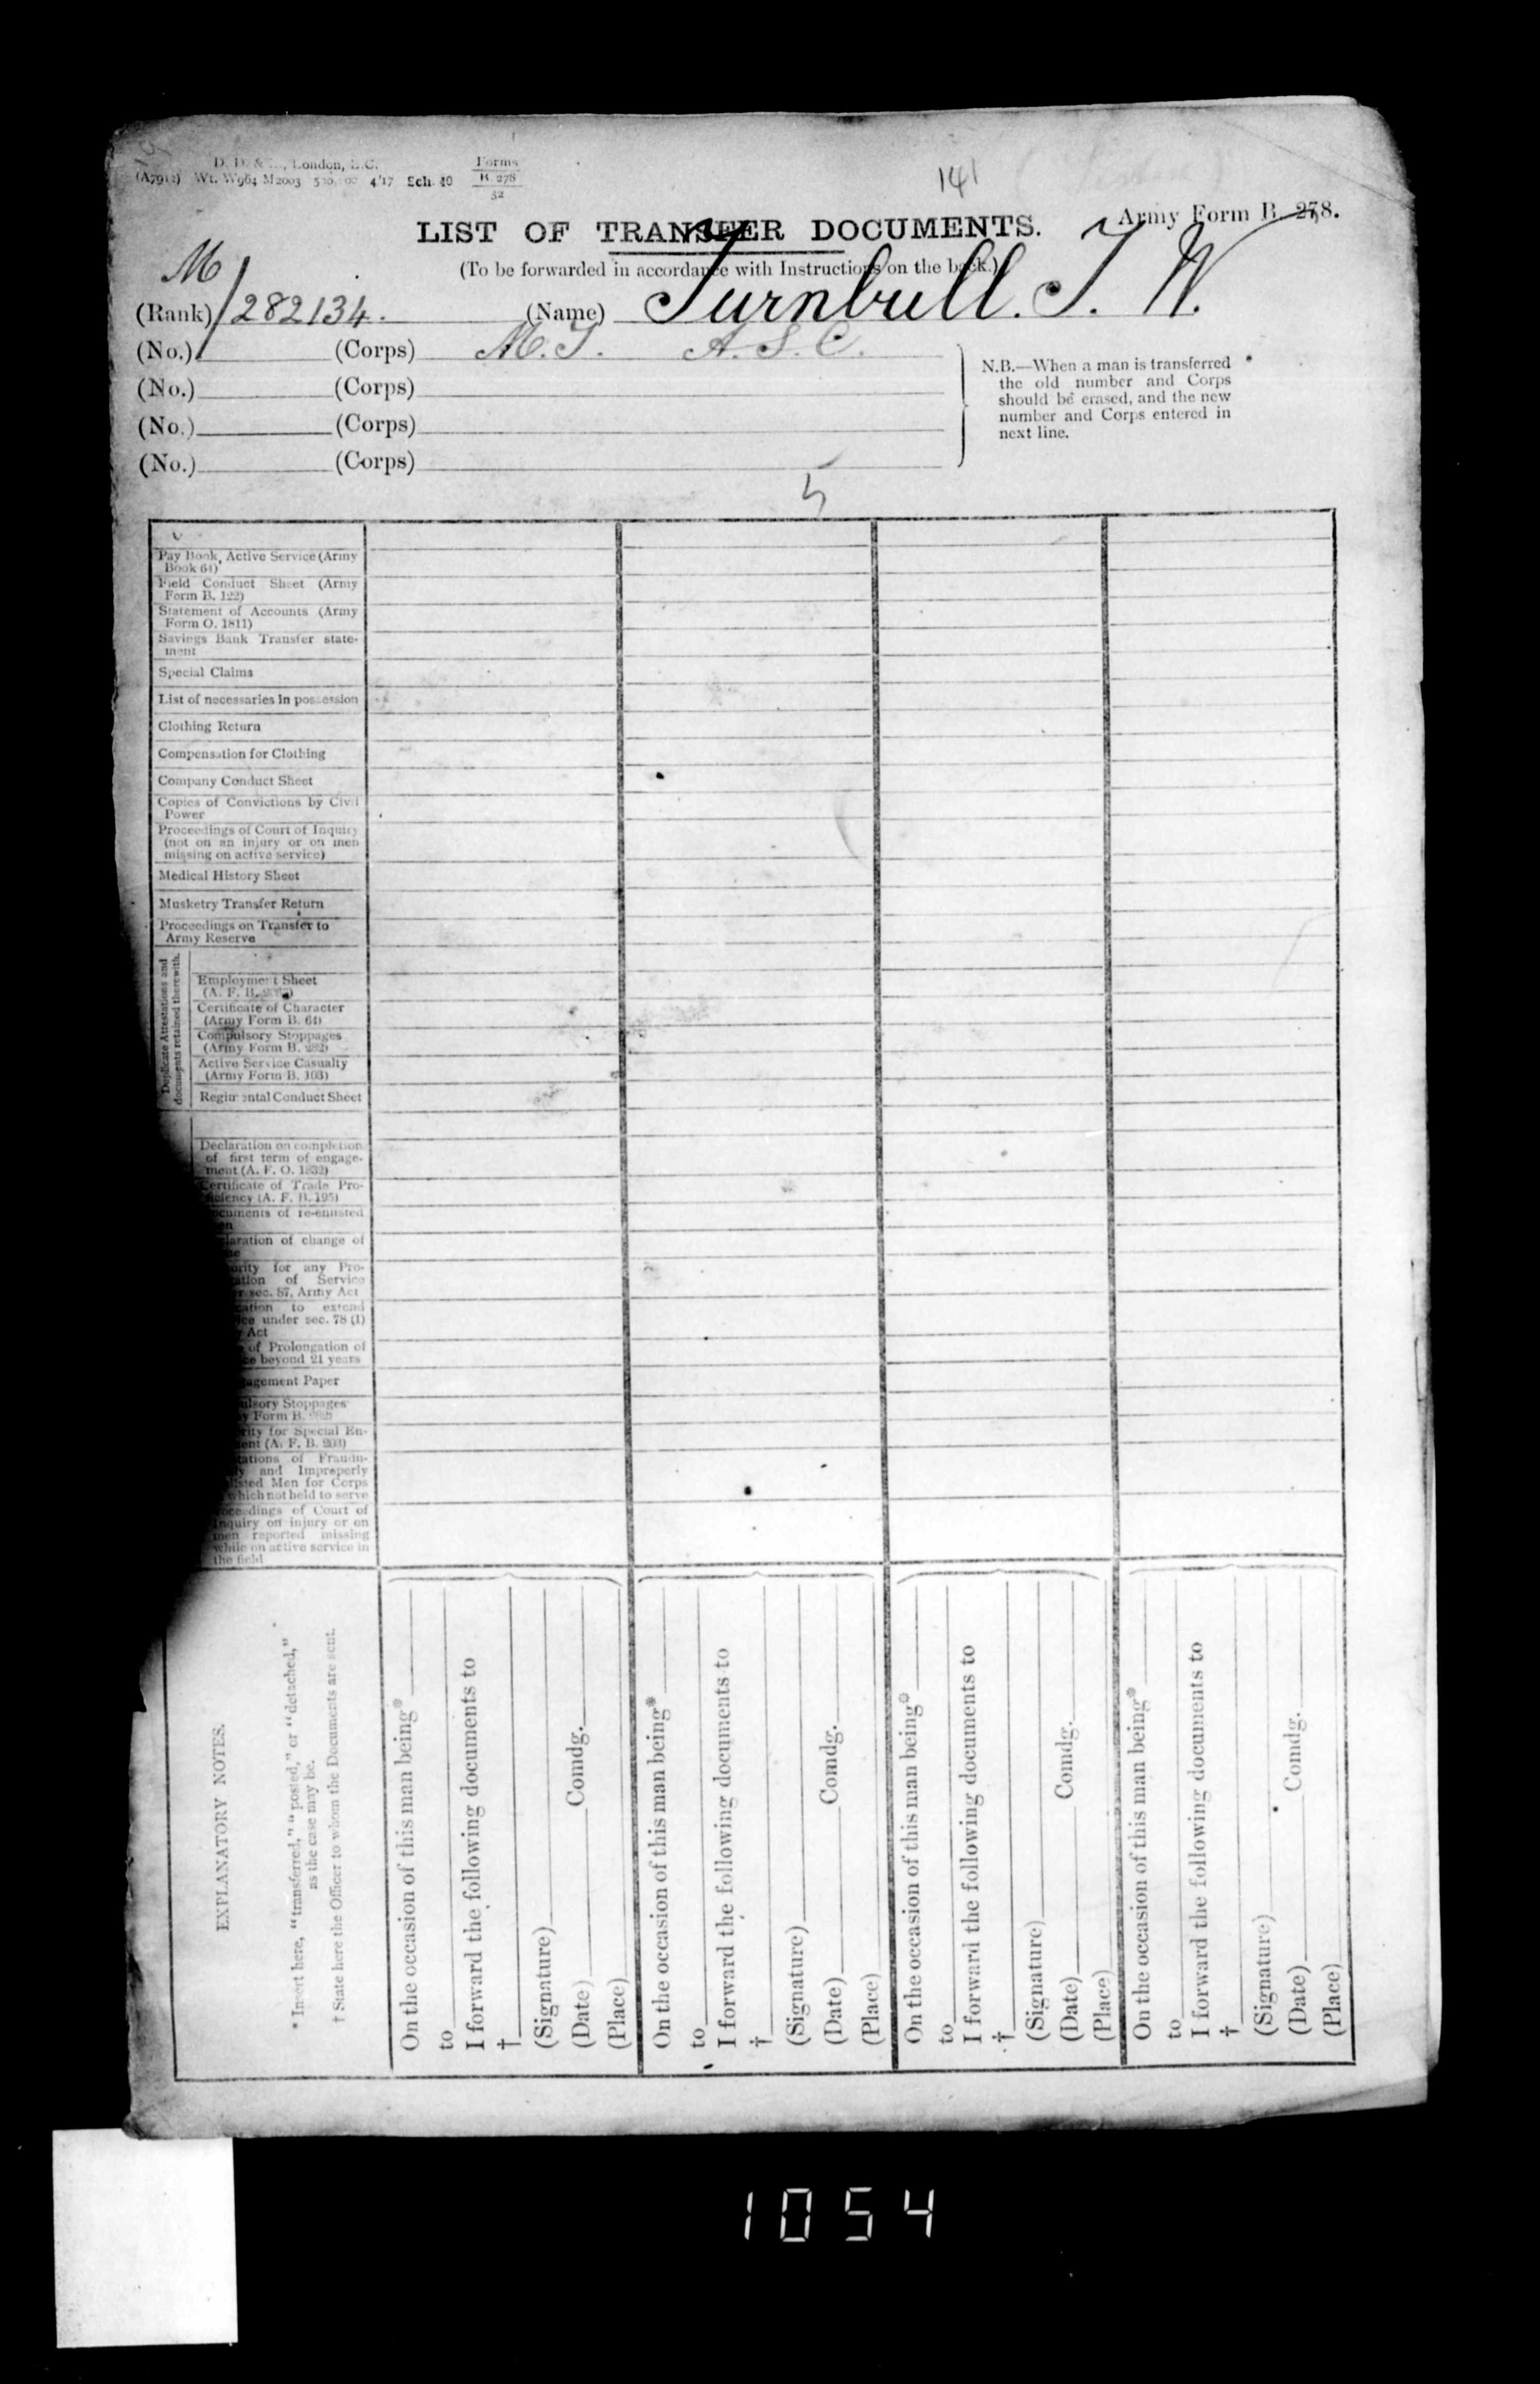 D. D. & , London, E.C.
(A7912) Wt. W964 M2003 4/17 Sch. 40 Forms B. 278 32
141
Army Form B. 278.
LIST OF TRANSFER DOCUMENTS.
(To be forwarded in accordance with Instructions on the back.)
M
(Rank) / 282134. (Name) Turnbull. T. W.
(No.) (Corps) M. T. A. S. C.
(No.) (Corps)
(No.) (Corps)
(No.) (Corps)
N.B.—When a man is transferred
the old number and Corps
should be erased, and the new
number and Corps entered in
next line.
5
Pay Book, Active Service (Army
Book 64)
Field Conduct Sheet (Army
Form B. 122)
Statement of Accounts (Army
Form O. 1811)
Savings Bank Transfer state-
ment
Special Claims
List of necessaries in possession
Clothing Return
Compensation for Clothing
Company Conduct Sheet
Copies of Convictions by Civil
Power
Proceedings of Court of Inquiry
(not on an injury or on men
missing on active service)
Medical History Sheet
Musketry Transfer Return
Proceedings on Transfer to
Army Reserve
Duplicate Attestations and
documents retained therewith.
Employment Sheet
(A. F. B.
Certificate of Character
(Army Form B. 64)
Compulsory Stoppages
(Army Form B.
Active Service Casualty
(Army Form B. 103)
Regimental Conduct Sheet
Declaration on completion
of first term of engage-
ment (A. F. O. 1832)
Certificate of Trade Pro-
ficiency (A. F. B. 195)
ocuments of re-enlisted
en
laration of change of
me
ority for any Pro-
ation of Service
r sec. 87, Army Act
cation to extend
ice under sec. 78 (1)
y Act
of Prolongation of
ce beyond 21 years
agement Paper
ulsory Stoppages
y Form B.
rity for Special En-
ent (A. F. B. 203)
tations of Fraudu-
y and Improperly
listed Men for Corps
which not held to serve
roceedings of Court of
Inquiry on injury or on
men reported missing
while on active service in
the field
EXPLANATORY NOTES.
* Insert here, "transferred," "posted," or "detached,"
as the case may be.
† State here the Officer to whom the Documents are sent.
On the occasion of this man being*
to
I forward the following documents to
†
(Signature)
(Date) Comdg.
(Place)
On the occasion of this man being*
to
I forward the following documents to
†
(Signature)
(Date) Comdg.
(Place)
On the occasion of this man being*
to
I forward the following documents to
†
(Signature)
(Date) Comdg.
(Place)
On the occasion of this man being*
to
I forward the following documents to
†
(Signature)
(Date) Comdg.
(Place)
1054